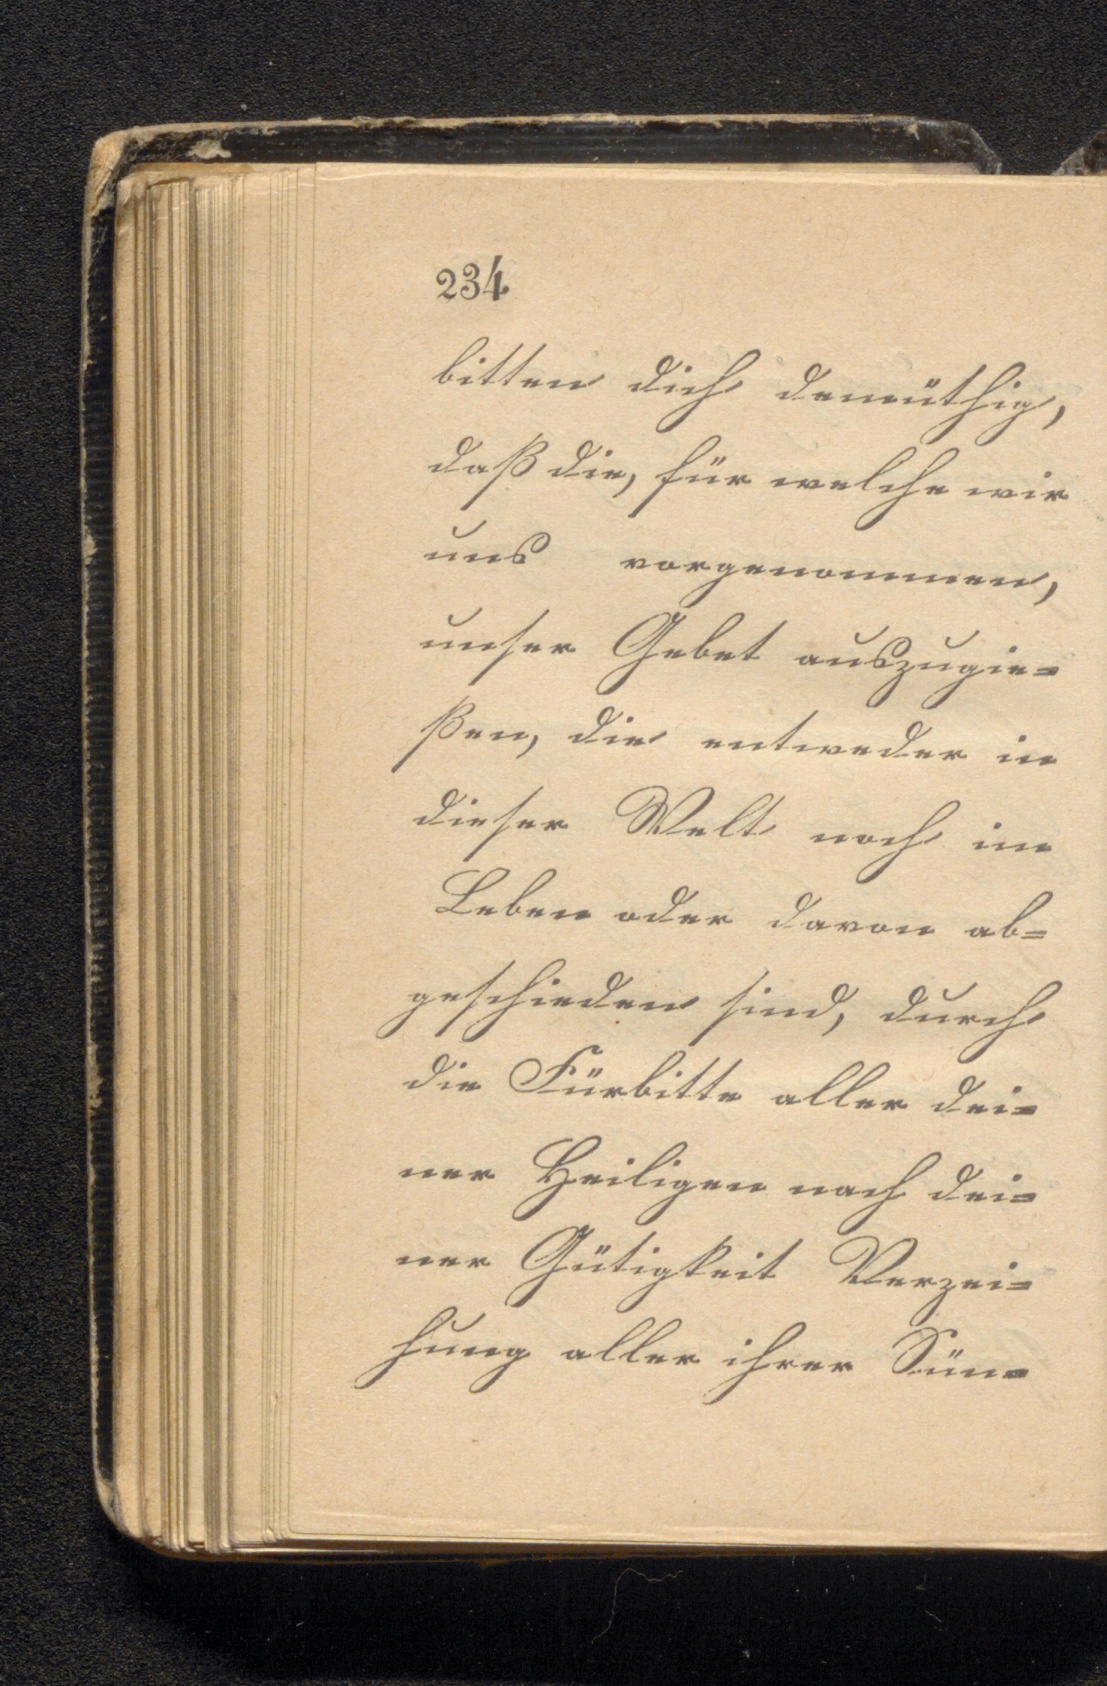 234
bitten dich demüthig,
daß die, für welche wir
uns vorgenommen,
unser Gebet auszugie=
ßen, die entweder in
dieser Welt noch im
Leben oder davon ab=
geschieden sind, durch
die Fürbitte aller dei=
ner Heiligen nach dei=
ner Gütigkeit Verzei=
hung aller ihrer Sün=